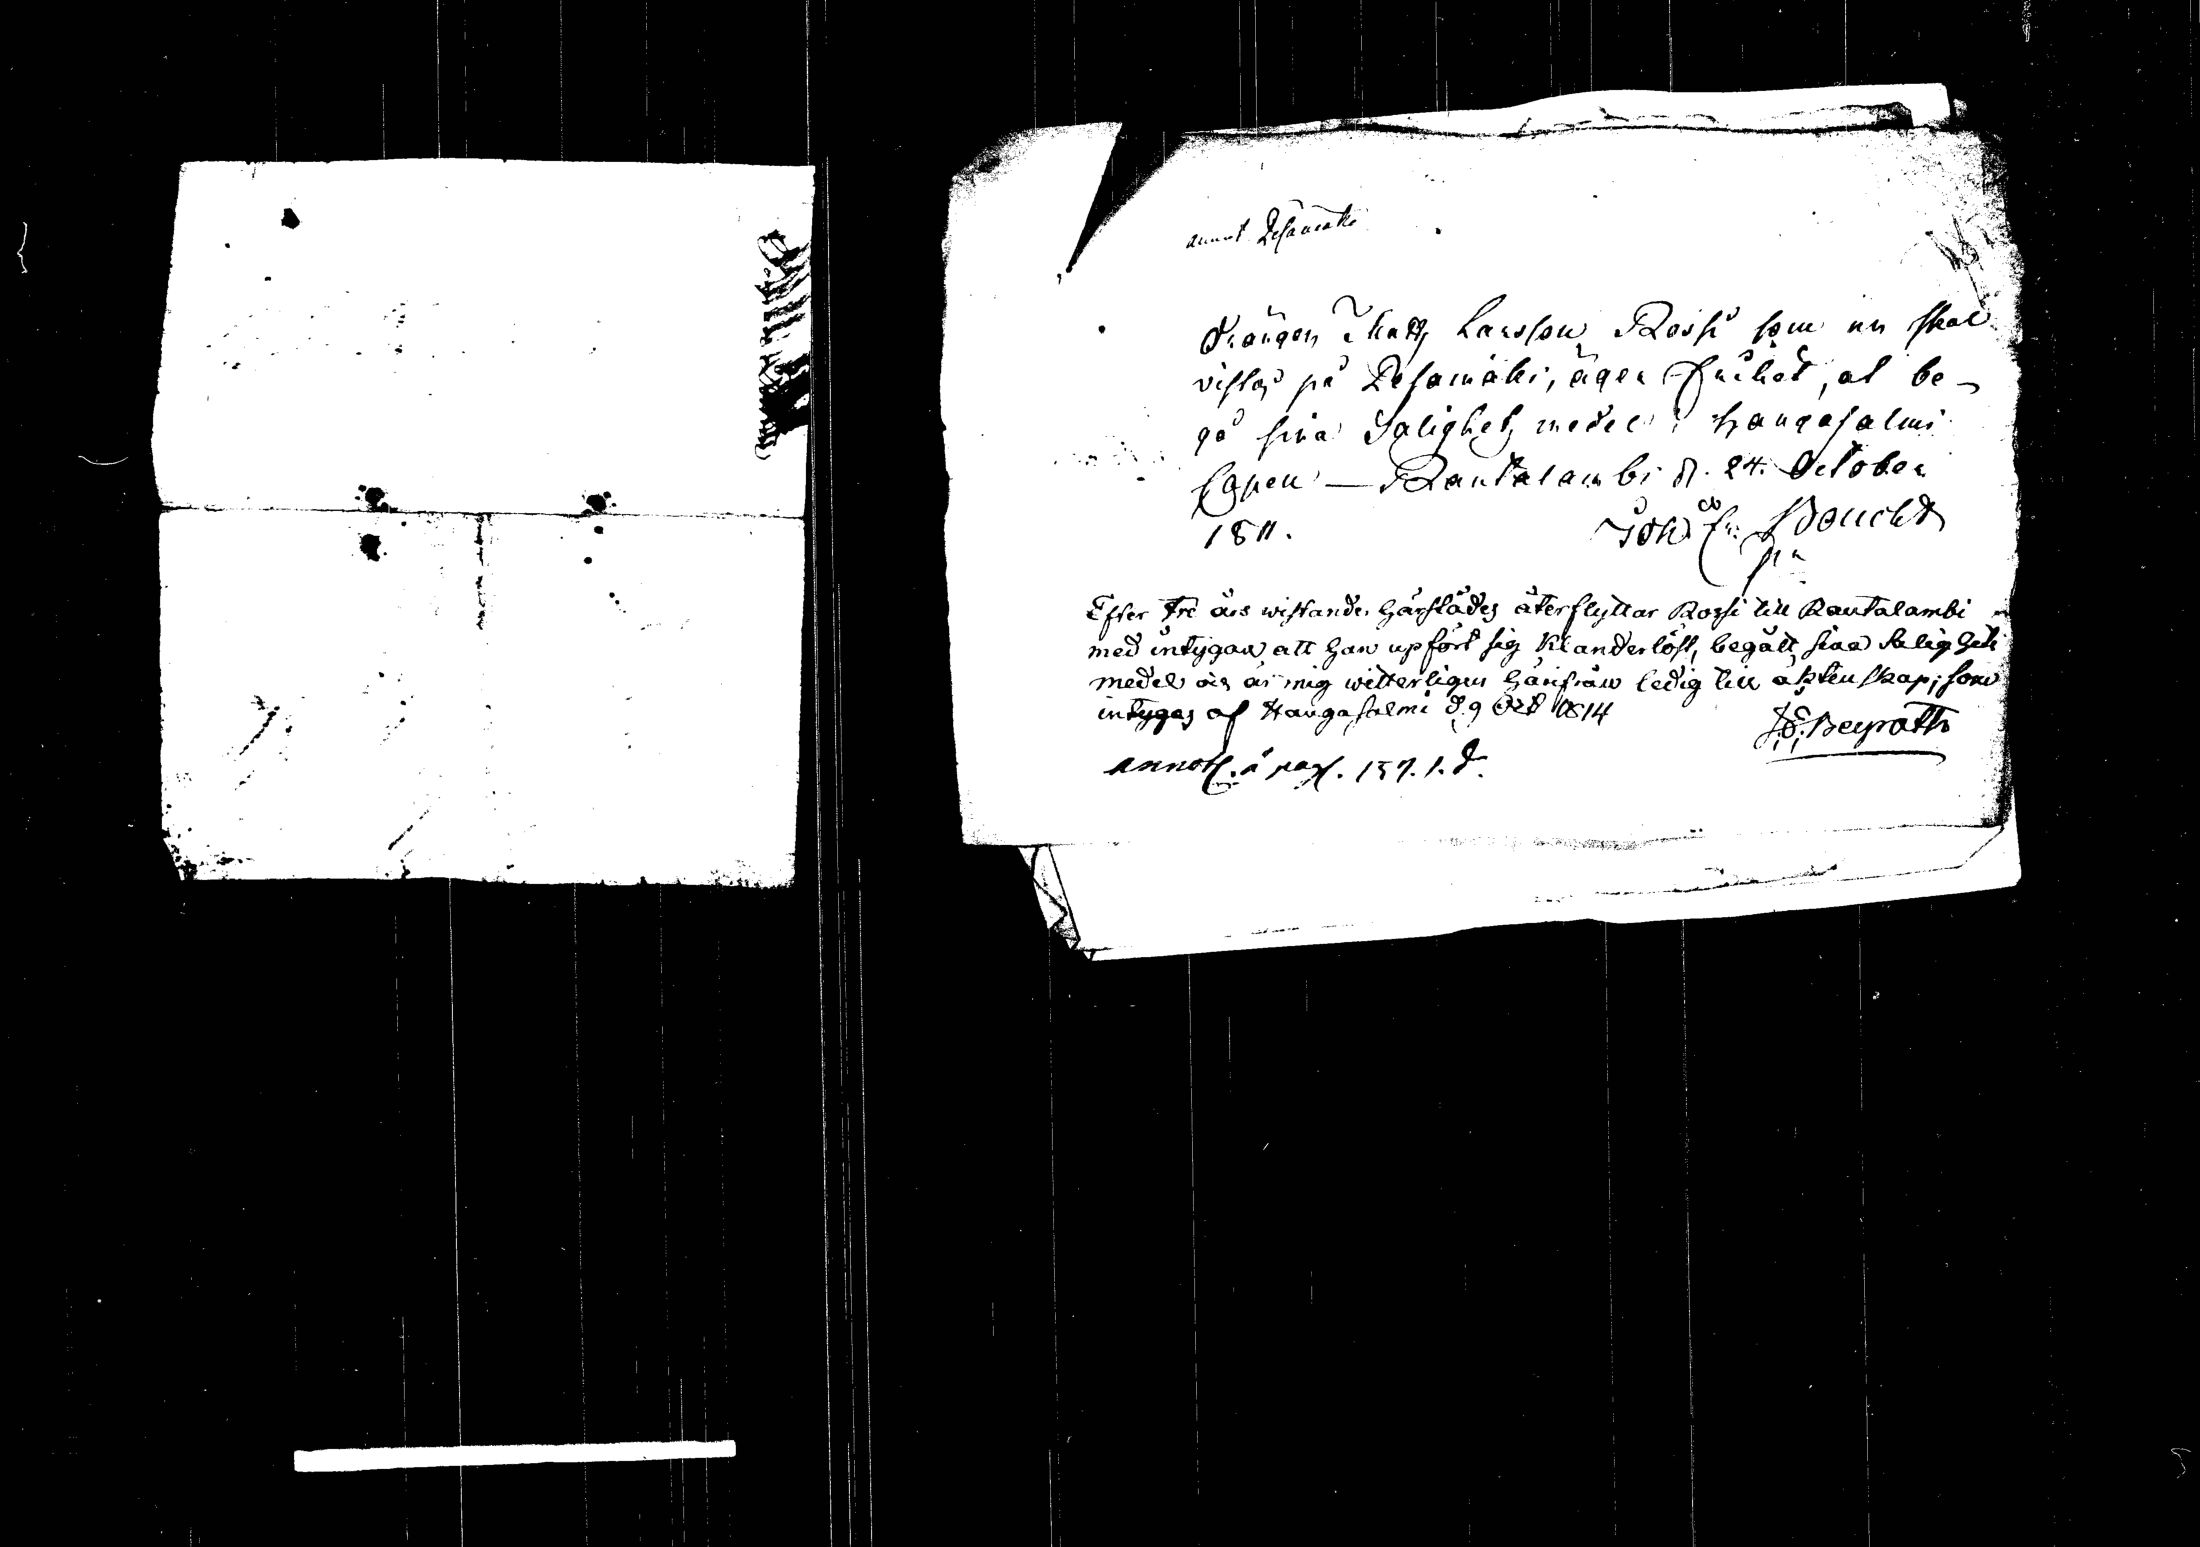 annot Resamäki
Drängen Matts Larsson Rossi som nu skal
vistas på Resamäki, äger frihet, at be-
gå sina Salighets medel i Hangasalmi
Capell — Rautalambi d. 24. October
1811. Joh Fr. Boucht
Efter tre års wistande härstädes återflyttar Rossi till Rautalambi
med intygan att han upfört sig Klanderlöst, begått sina Salighets
medel och är mig witterligen härifrån ledig till äktenskap; som
intygas af Hangasalmi d. 9 Oct 1814
Beyrath
annot. å pag. 157. 1. d.